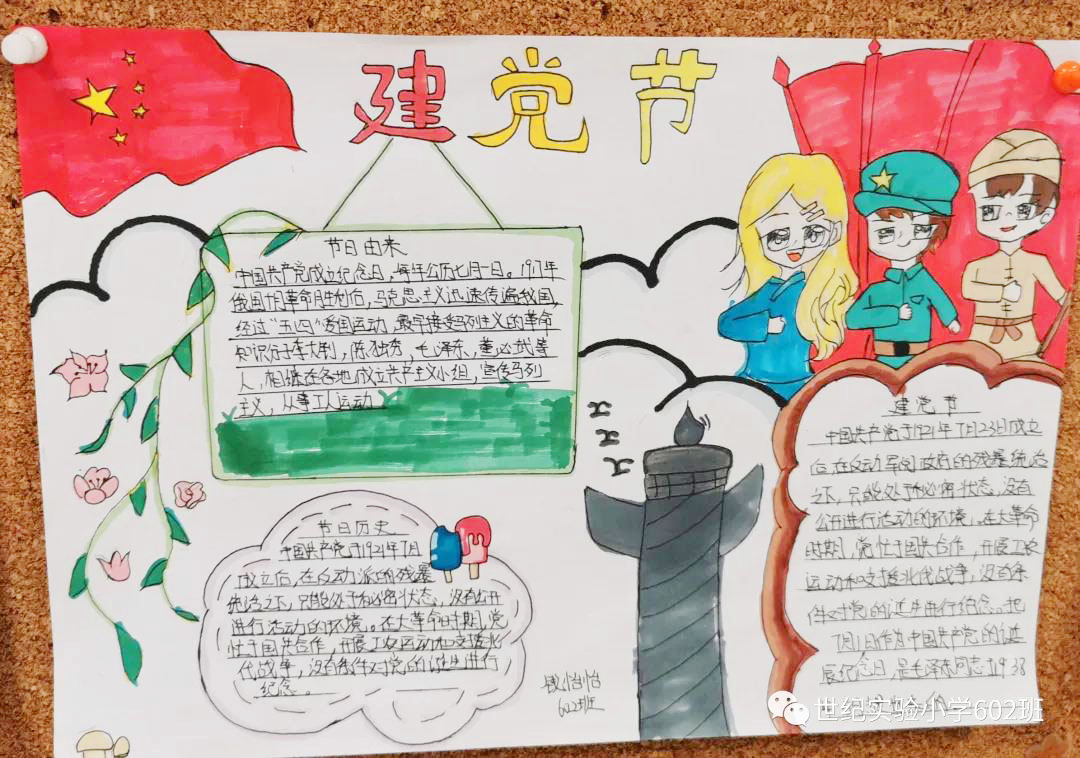 建党节
节日由来
中国共产党成立纪念日，每年公历七月一日。1917年
俄国十月革命胜利后，马克思主义迅速传遍我国，
经过“五四”爱国运动，最早接受马列主义的革命
知识分子李大钊，陈独秀，毛泽东，董必武等
人，相继在各地成立共产主义小组，宣传马列
主义，从事工人运动
节日历史
中国共产党于1921年7月
成立后，在反动派的残暴
统治之下，只能处于秘密状态，没有公开
进行活动的环境。在大革命时期，党
忙于国共合作，开展工农运动和支援北
代战争，没有条件对党的诞生进行
纪念。
怡怡
602班
建党节
中国共产党于1921年7月23日成立
后在反动军阀政府的残暴统治
之下，只能处于秘密状态，没有
公开进行活动的环境，在大革命
时期，党忙于国共合作，开展工农
运动和支援北伐战争，没有条
件对党的诞生进行纪念。把
7月1日作为中国共产党的诞
辰纪念日，是毛泽东同志于1938
世纪实验小学602班